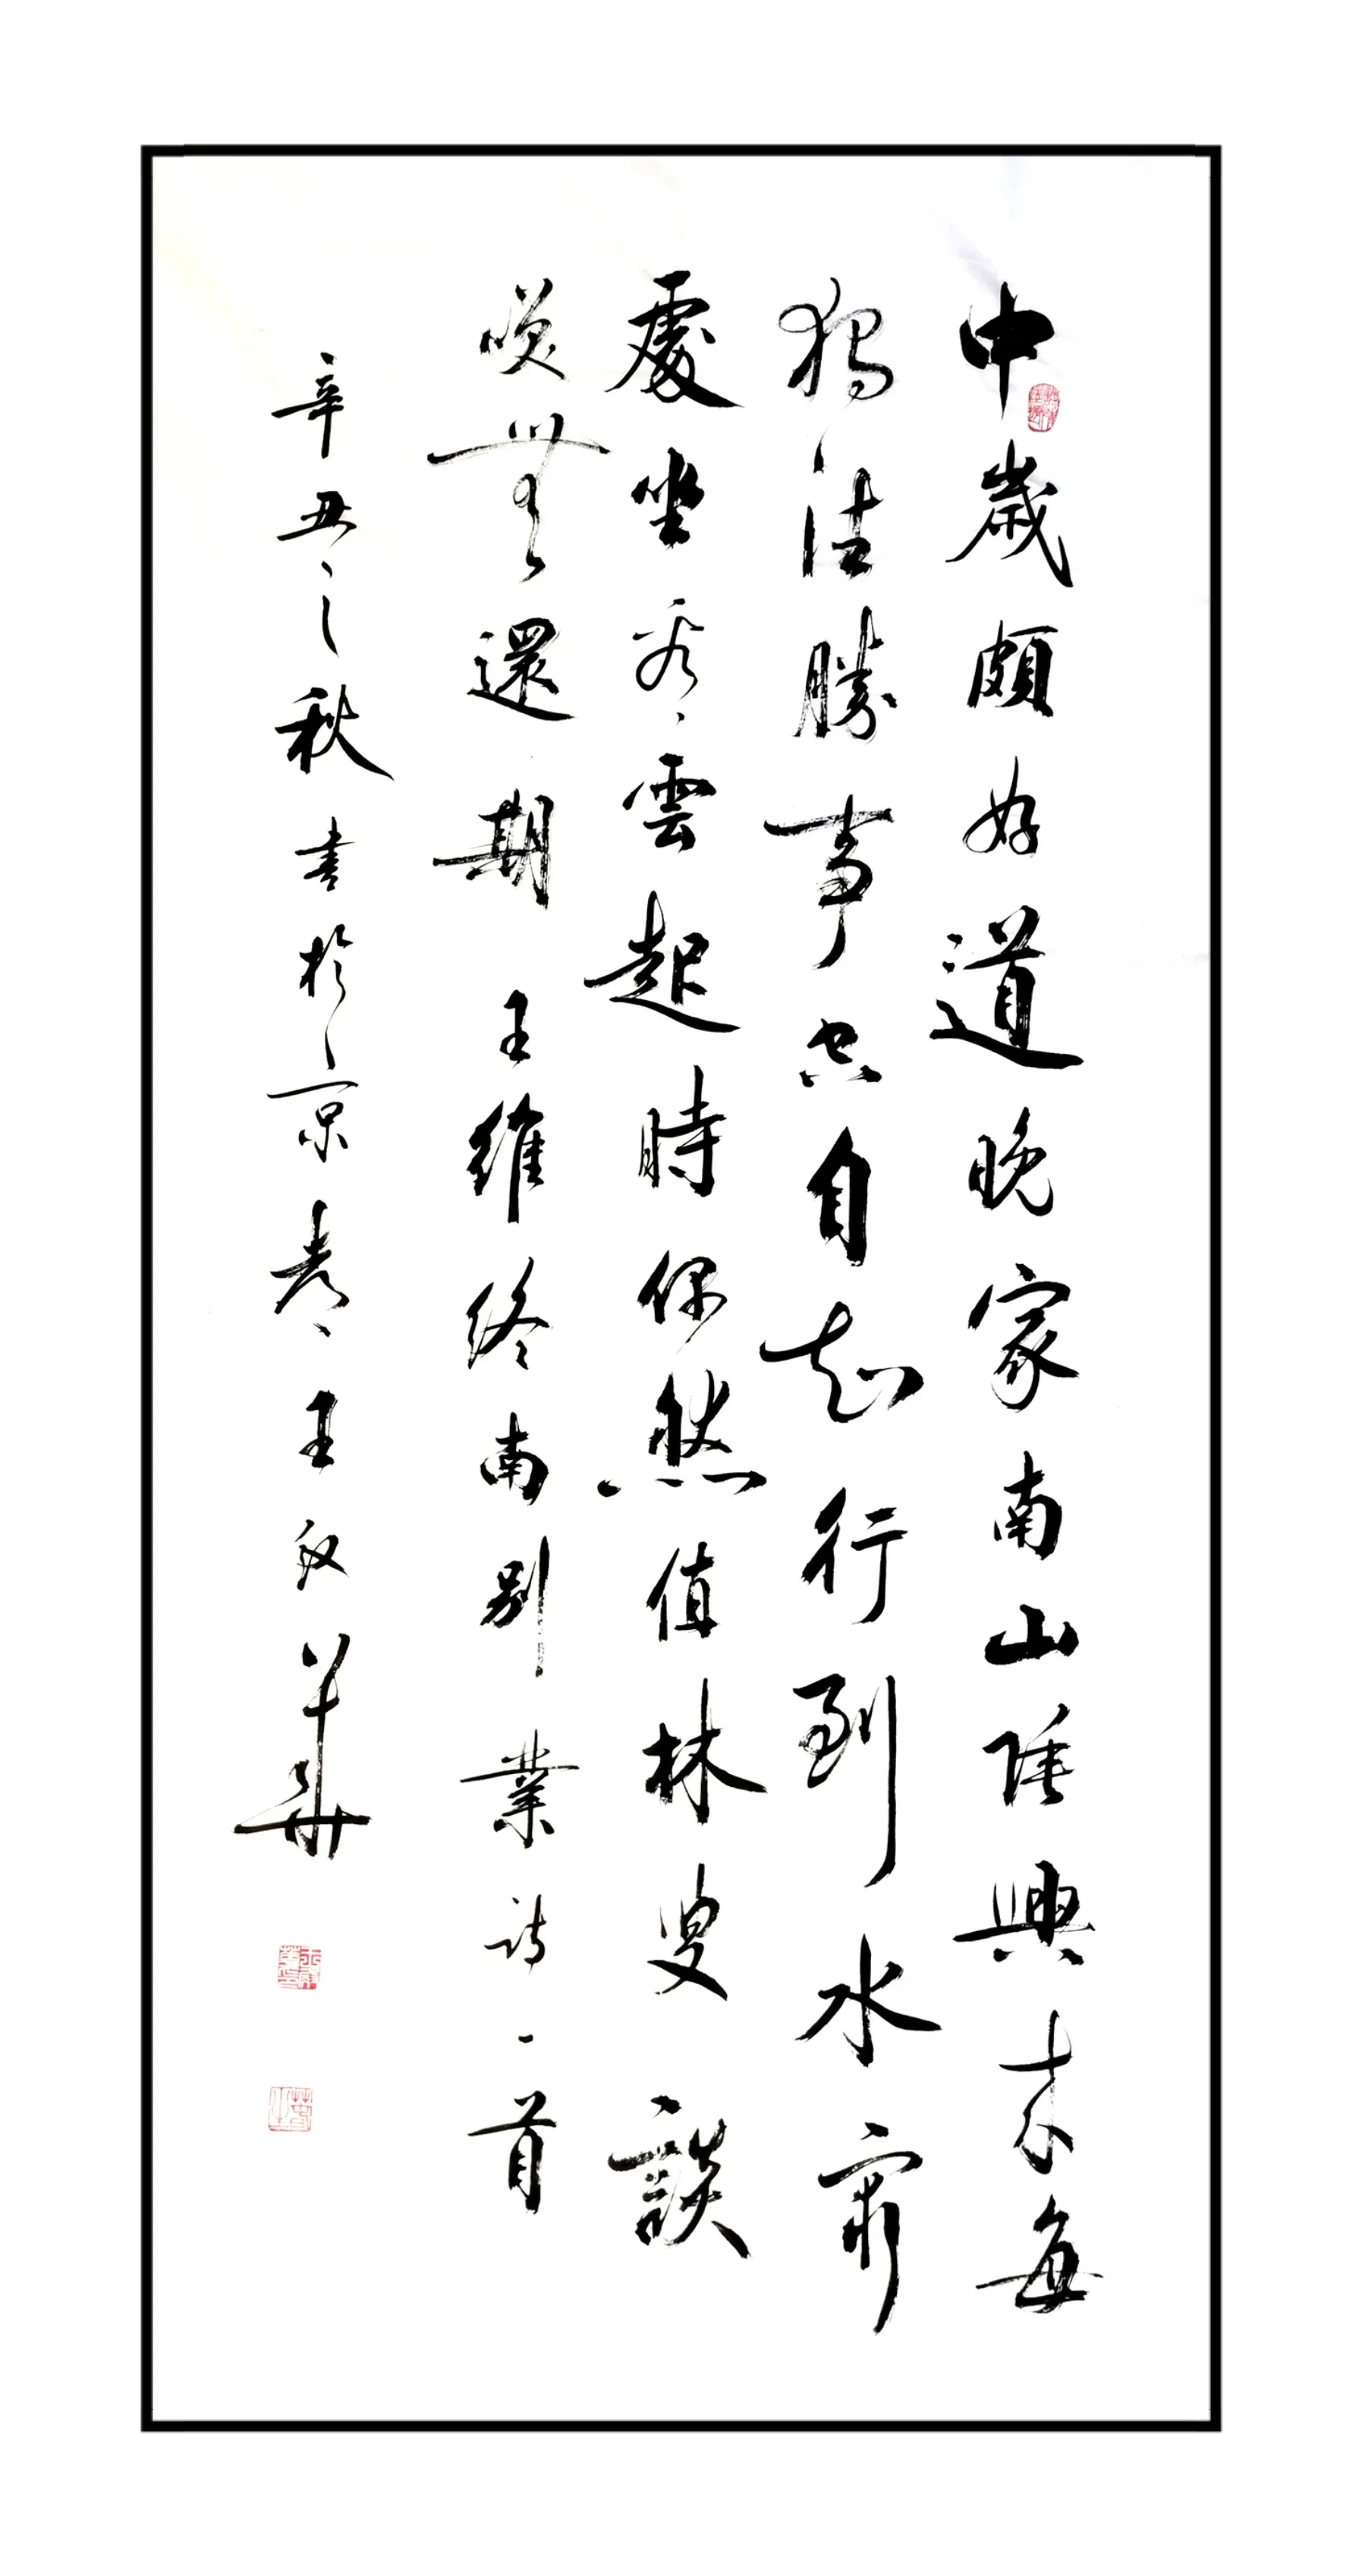 中歲頗好道晚家南山陲興來每
獨往勝事空自知行到水窮
處坐看雲起時偶然值林叟談
笑無還期 王維終南別業詩一首
辛丑之秋書於京都王汉華